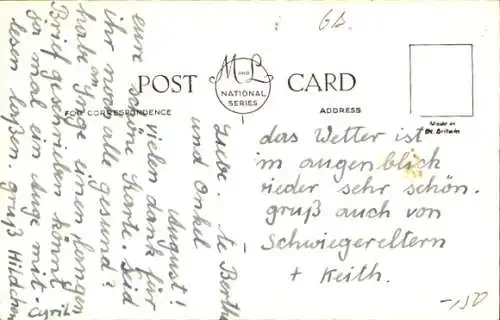 6d.
POST CARD
M AND L
NATIONAL
SERIES
FOR CORRESPONDENCE
ADDRESS
Made in
Gt. Britain
Liebe. te Berthe
und Onkel
August!
vielen dank für
eure schöne Karte. seid
ihr noch alle gesund?
habe an Inge einen langen
Brief geschrieben könnt
ja mal ein Auge mit-
lesen laßen. gruß Hildchen
Cyril
das Wetter ist
im augenblick
wieder sehr schön.
gruß auch von
Schwiegereltern
+ Keith.
-,50